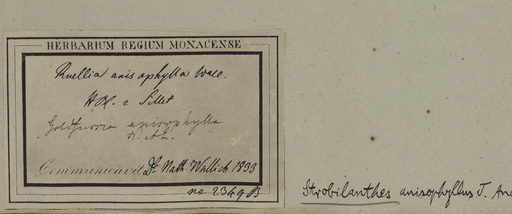 HERBARIUM REGIUM MONACENSE
Ruellia anisophylla Wall.
H. e Sillet
Goldfussia anisophylla
N. ab E.
Communicavit Dr. Nath. Wallich 1833
no 2349 B
Strobilanthes anisophyllus T. And